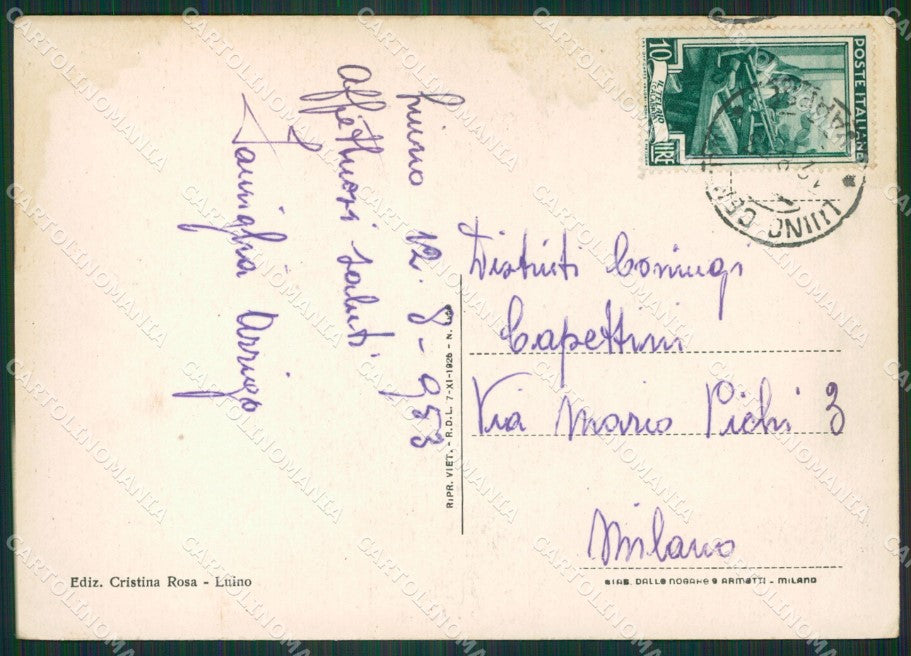 Luino 12-8-953
Affettuosi saluti
Famiglia Arrigo
Distinti Coniugi
Capettini
Via Mario Pichi 3
Milano
POSTE ITALIANE
10 LIRE
IL TELAIO
LUINO
RIPR. VIET. - R.D.L. 7-XI-1926 - N.
Ediz. Cristina Rosa - Luino
STAB. DALLE NOGARE & ARMETTI - MILANO
CARTOLINOMANIA